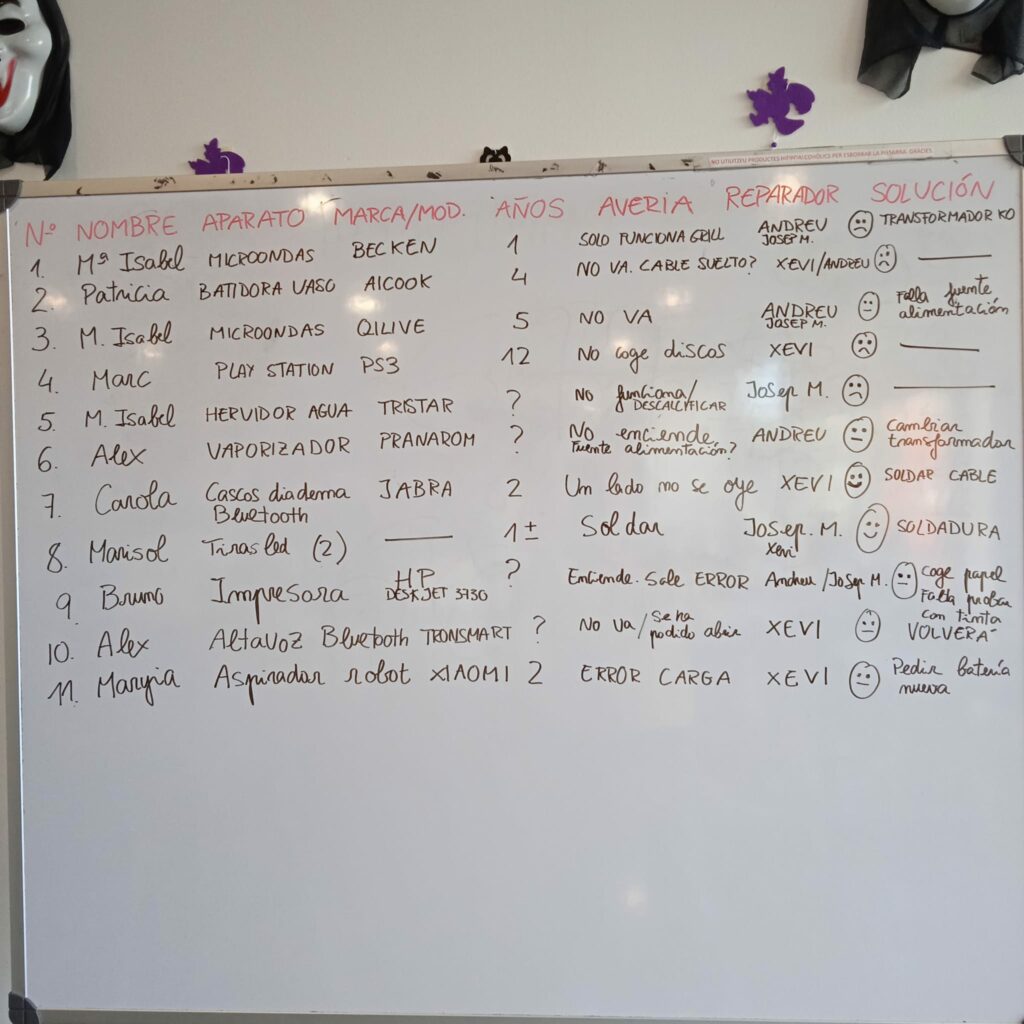 NO UTILITZEU PRODUCTES HIDROALCOHÒLICS PER ESBORRAR LA PISSARRA. GRÀCIES
Nº NOMBRE APARATO MARCA/MOD. AÑOS AVERIA REPARADOR SOLUCIÓN
1. Mª Isabel MICROONDAS BECKEN 1 SOLO FUNCIONA GRILL ANDREU JOSEP M. TRANSFORMADOR KO
2. Patricia BATIDORA VASO AICOOK 4 NO VA. CABLE SUELTO? XEVI/ANDREU
3. M. Isabel MICROONDAS QILIVE 5 NO VA ANDREU JOSEP M. Falla fuente alimentación
4. Marc PLAY STATION PS3 12 No coge discos XEVI
5. M. Isabel HERVIDOR AGUA TRISTAR ? No funciona/ DESCALCIFICAR Josep M.
6. Alex VAPORIZADOR PRANAROM ? No enciende Fuente alimentación? ANDREU Cambiar transformador
7. Carola Cascos diadema Bluetooth JABRA 2 Un lado no se oye XEVI SOLDAR CABLE
8. Marisol Tiras led (2) 1 ± Soldar Josep. M. Xevi SOLDADURA
9. Bruno Impresora HP DESKJET 3730 ? Enciende. Sale ERROR Andreu/Josep M. Coge papel Falta probar con tinta VOLVERÁ
10. Alex ALTAVOZ Bluetooth TRONSMART ? No va/ Se ha podido abrir XEVI
11. Maryia Aspirador robot XIAOMI 2 ERROR CARGA XEVI Pedir batería nueva